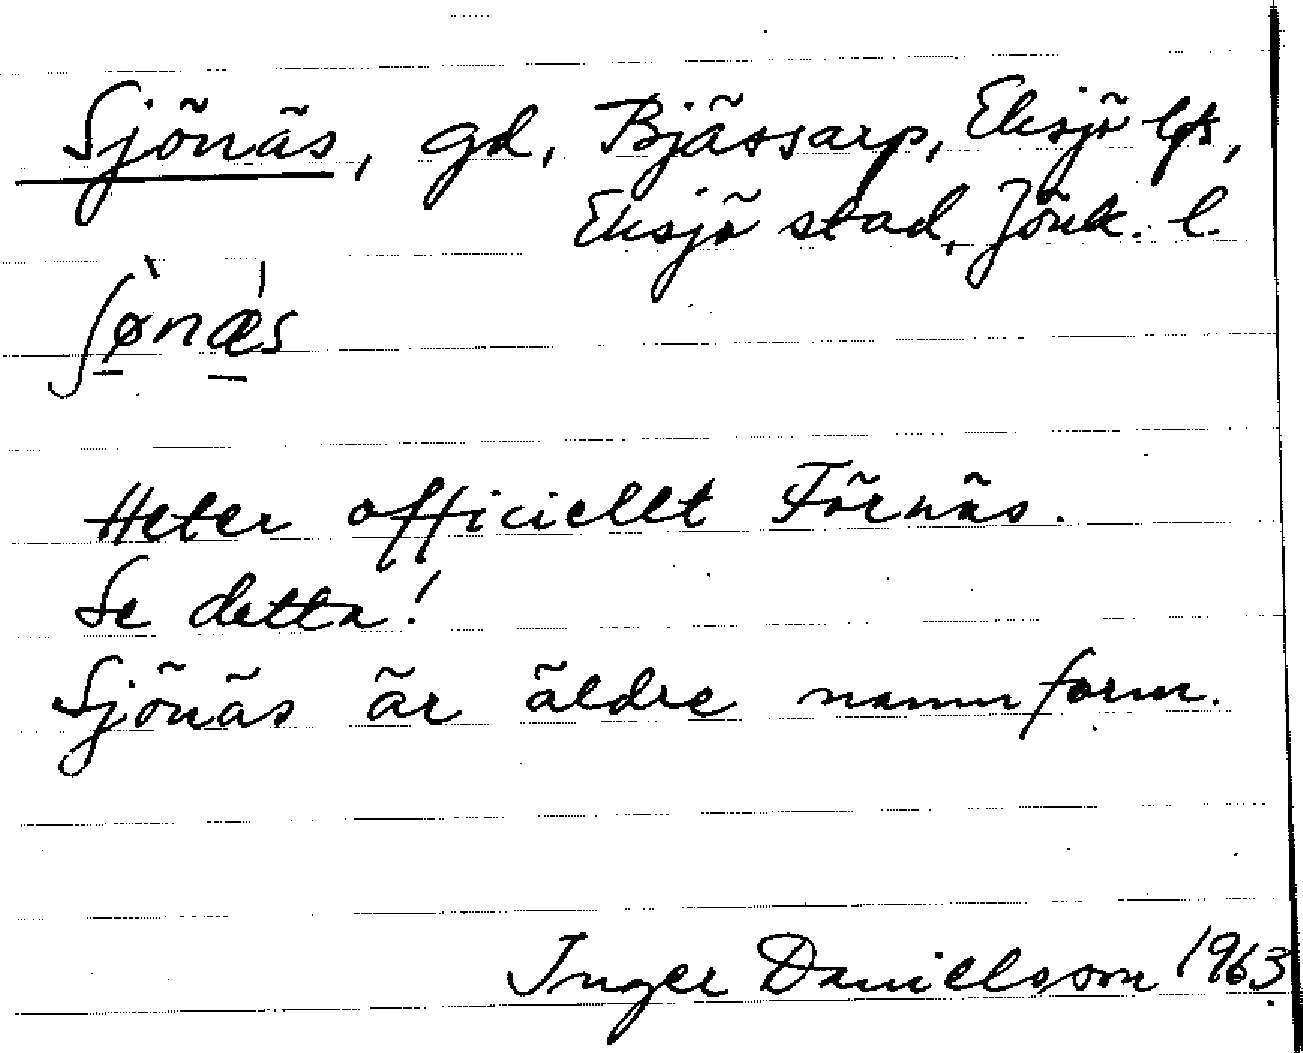 Sjönäs, gd, Bjässarp, Eksjö lfs,
Eksjö stad, Jönk. l.
ʃø̱̀næ̱ˈs
Heter officiellt Förnäs.
Se detta!
Sjönäs är äldre namnform.
Inger Danielsson 1963